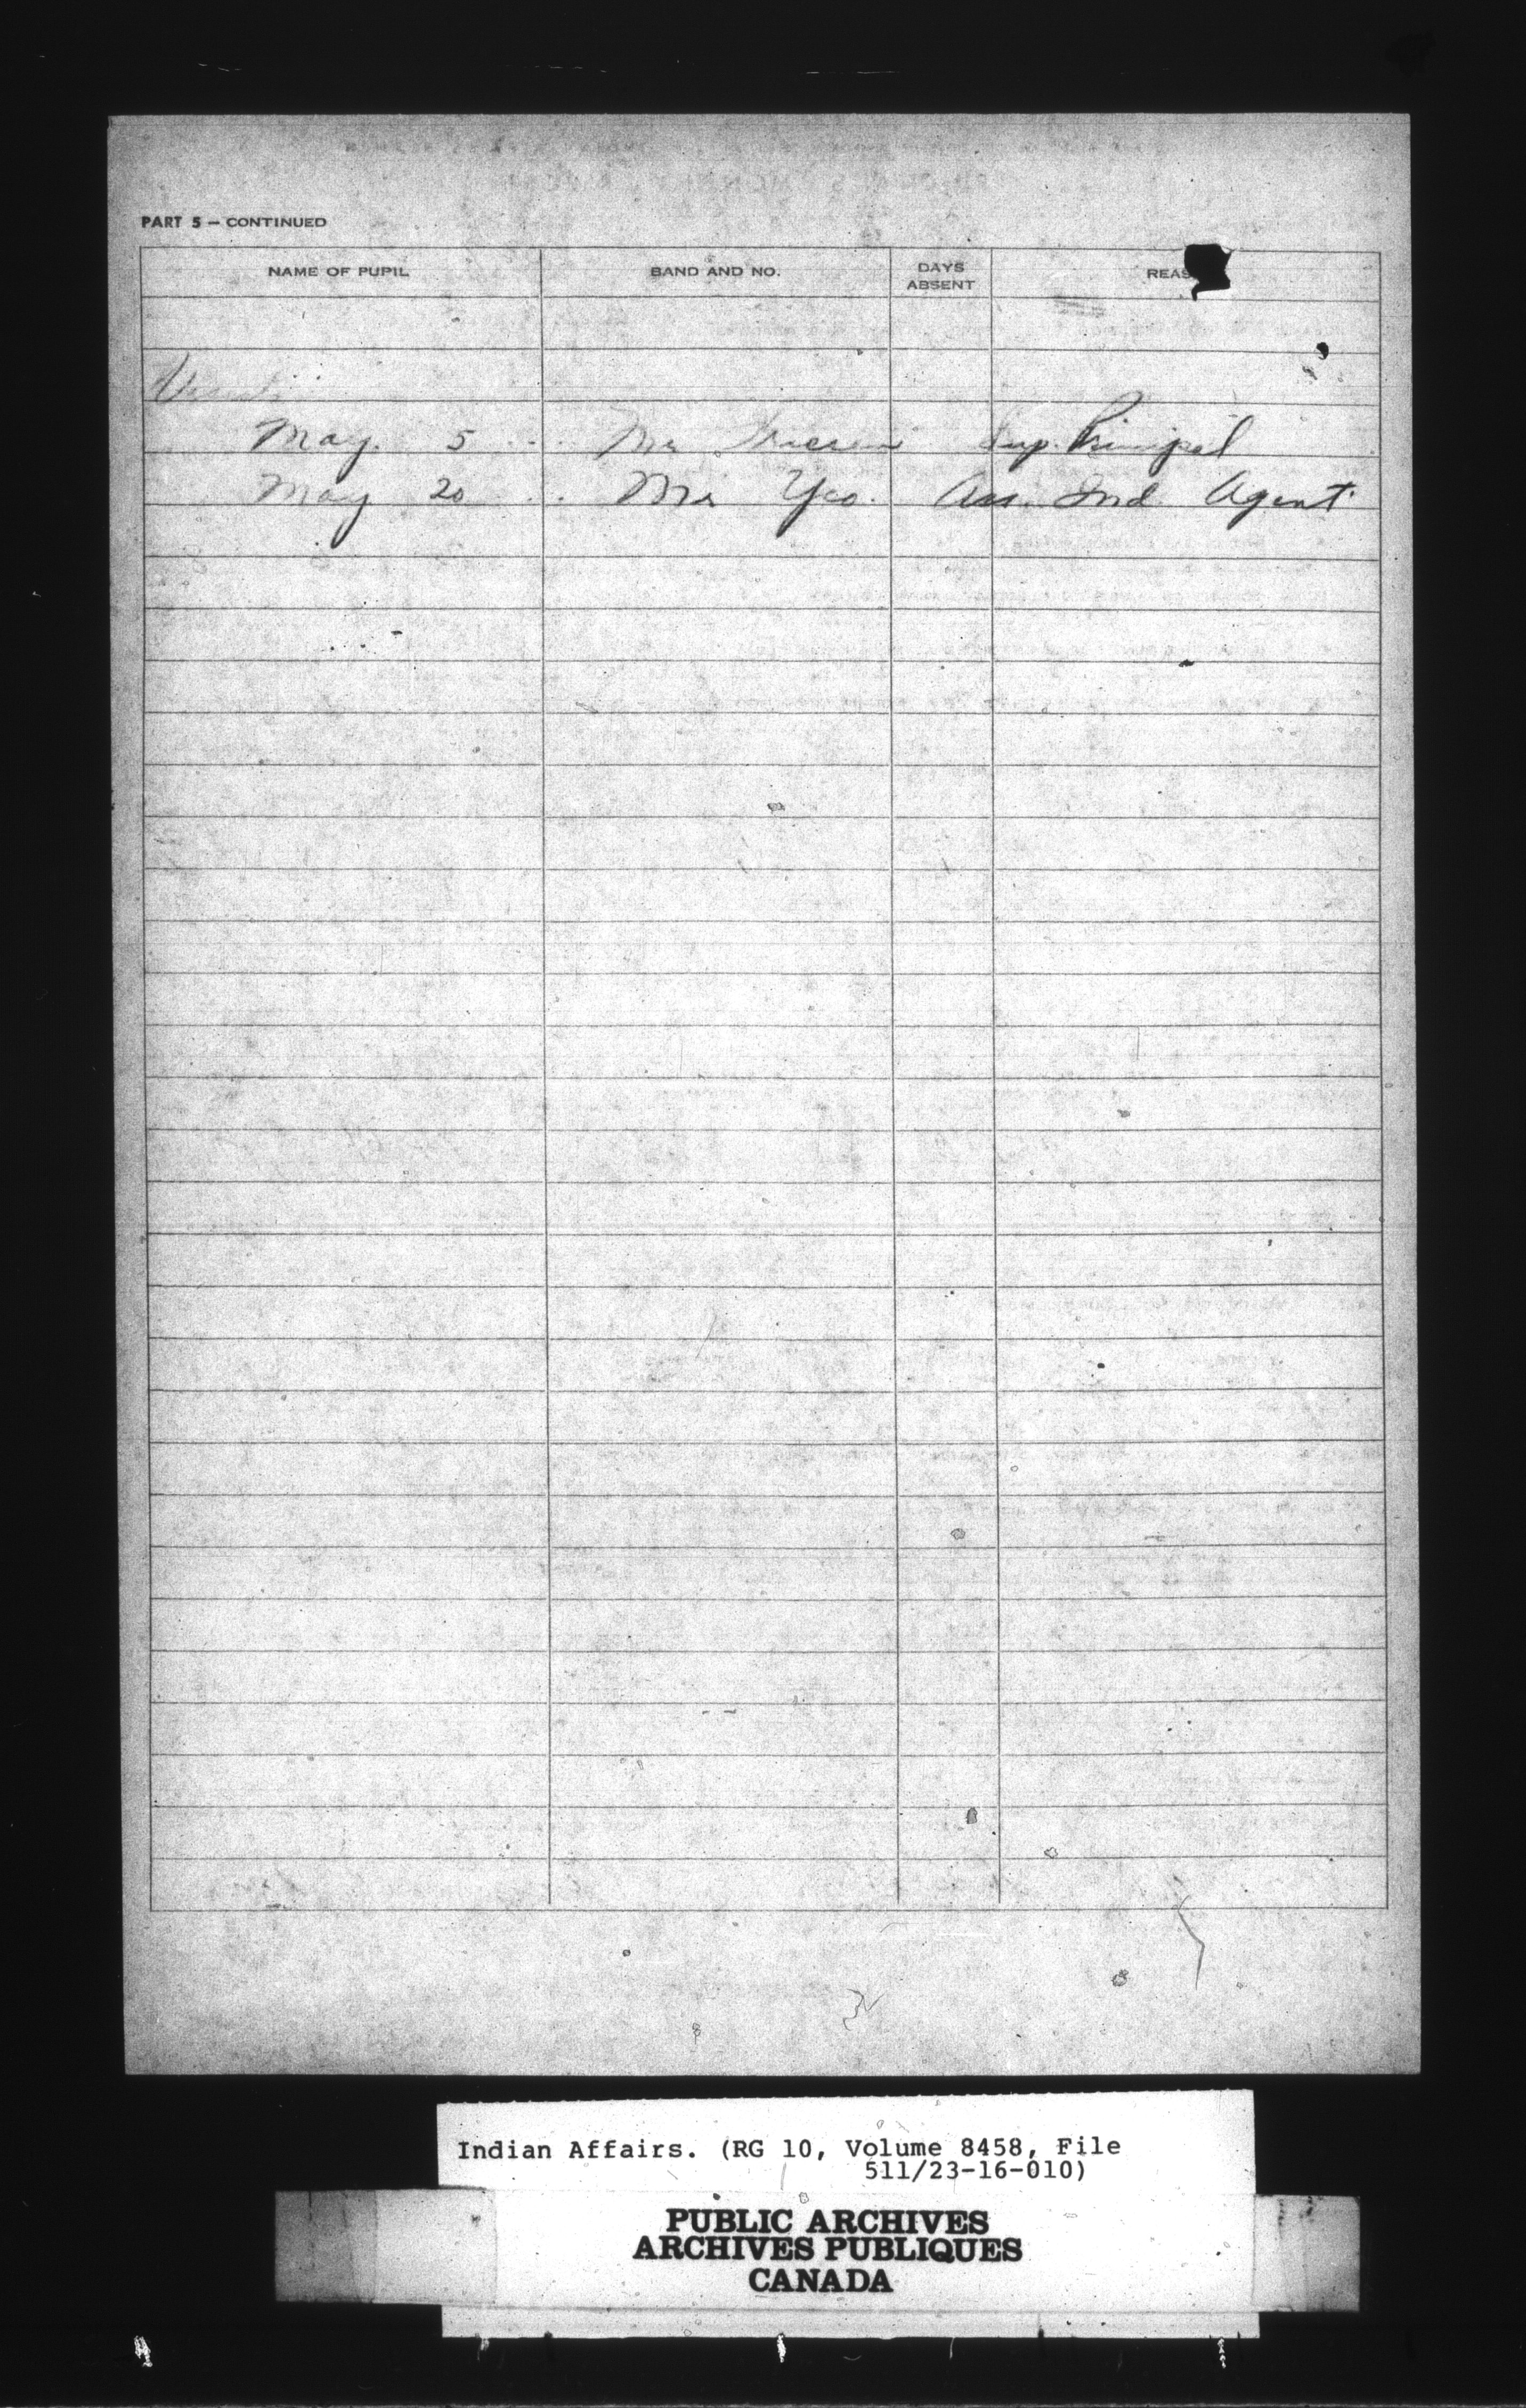 PART 5 — CONTINUED
NAME OF PUPIL BAND AND NO. DAYS ABSENT REAS
May. 5 ... Mr Sup. Principal
May 20 .. Mr Yeo. Ass. Ind Agent
Indian Affairs. (RG 10, Volume 8458, File
511/23-16-010)
PUBLIC ARCHIVES
ARCHIVES PUBLIQUES
CANADA